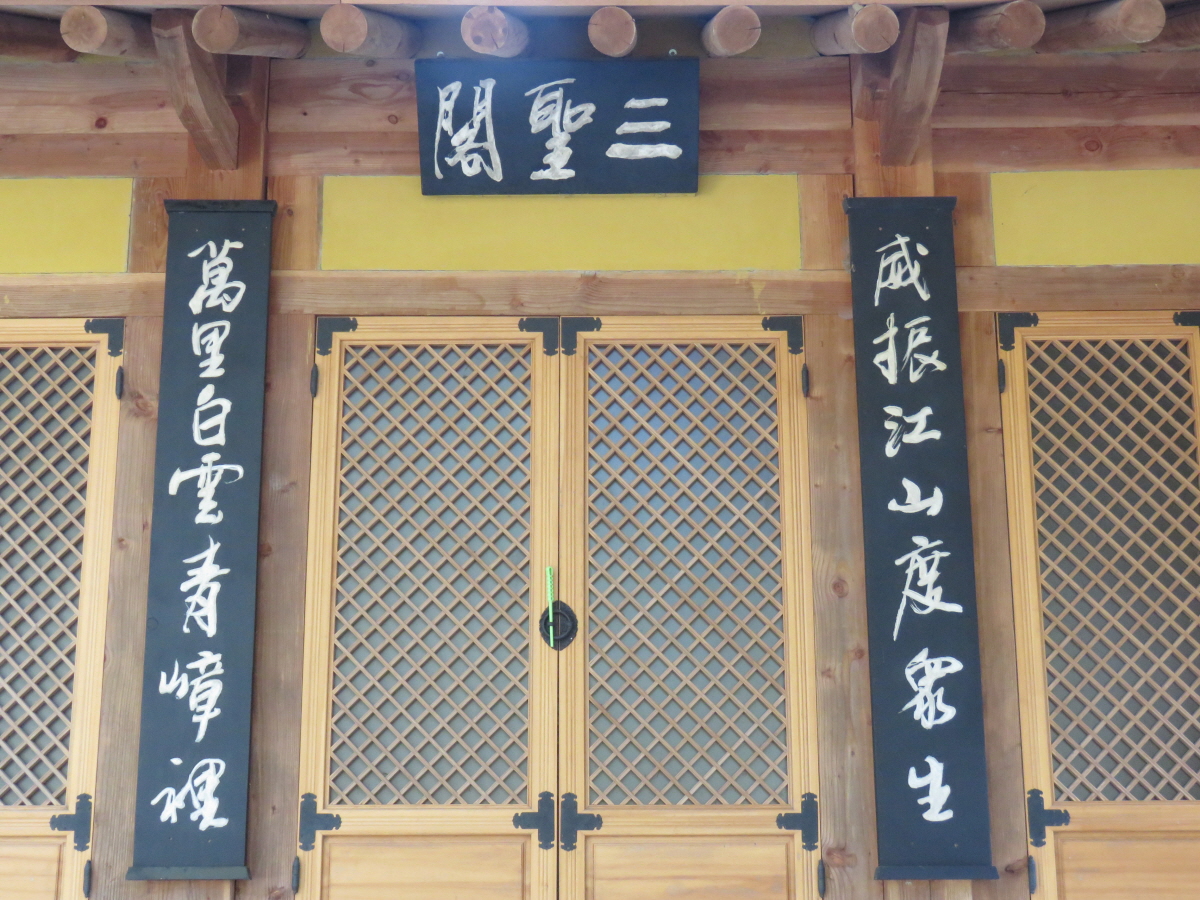 三聖閣
威振江山度衆生
萬里白雲青嶂裡